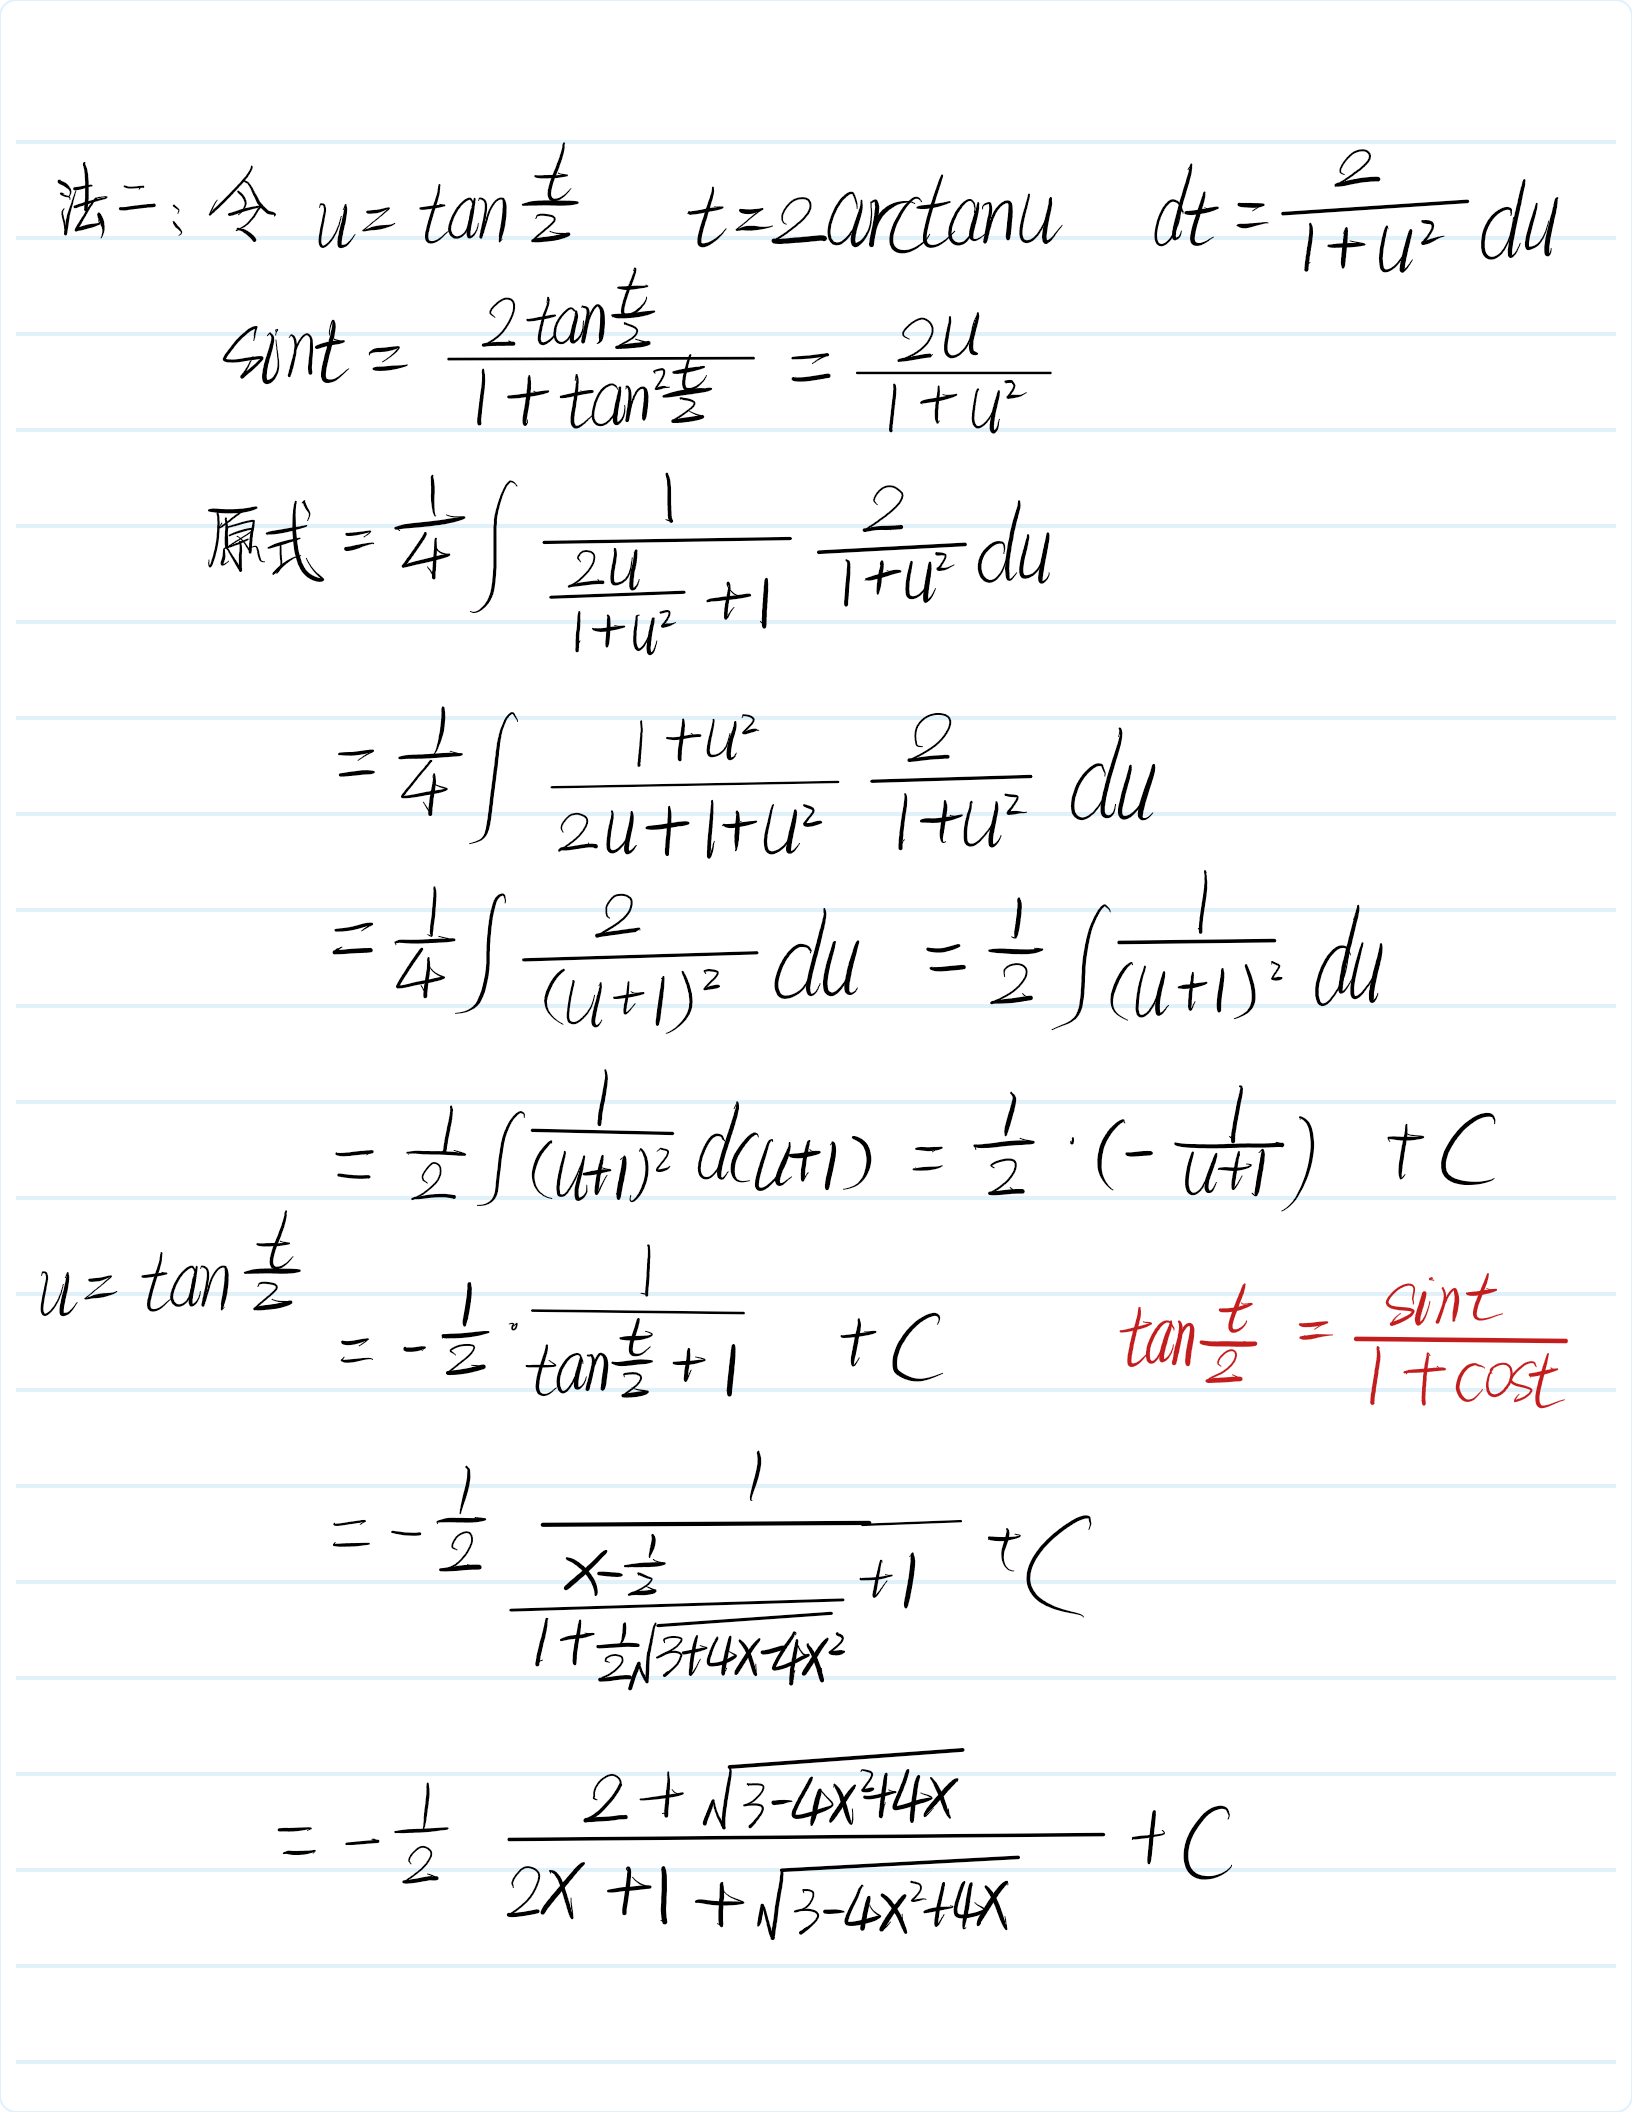 法二: 令 u = tan t/2   t = 2arctanu   dt = 2/(1+u²) du
sint = (2tan t/2)/(1+tan² t/2) = 2u/(1+u²)
原式 = 1/4 ∫ 1/(2u/(1+u²) +1) 2/(1+u²) du
= 1/4 ∫ (1+u²)/(2u+1+u²) 2/(1+u²) du
= 1/4 ∫ 2/(u+1)² du = 1/2 ∫ 1/(u+1)² du
= 1/2 ∫ 1/(u+1)² d(u+1) = 1/2 · (- 1/(u+1)) + C
u = tan t/2 = - 1/2 · 1/(tan t/2 + 1) + C   tan t/2 = sint/(1+cost)
= - 1/2 1/((x - 1/2)/(1 + 1/2 √(3+4x-4x²)) +1) + C
= - 1/2 (2+√(3-4x²+4x))/(2x+1+√(3-4x²+4x)) + C